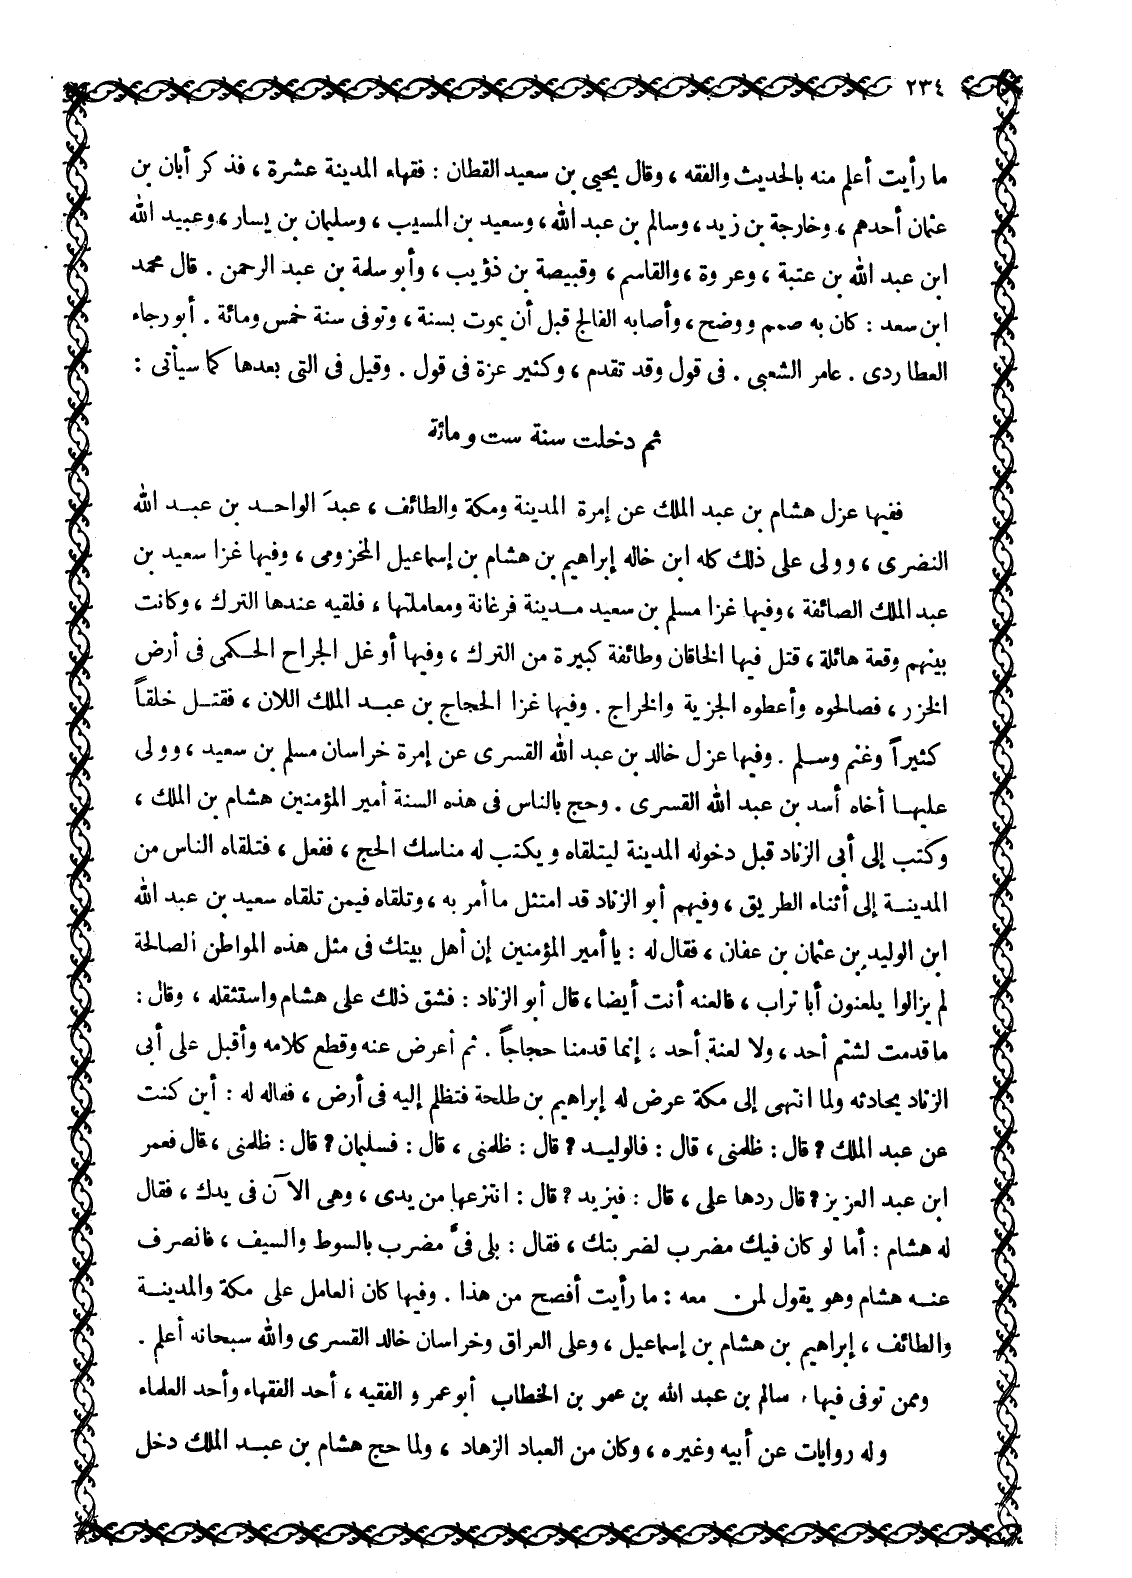 ٢٣٤
ما رأيت أعلم منه بالحديث والفقه ، وقال يحيى بن سعيد القطان : فقهاء المدينة عشرة ، فذكر أبان بن
عثمان أحدهم ، وخارجة بن زيد ، وسالم بن عبد الله ، وسعيد بن المسيب ، وسليمان بن يسار ، وعبيد الله
ابن عبد الله بن عتبة ، وعروة ، والقاسم ، وقبيصة بن ذؤيب ، وأبو سلمة بن عبد الرحمن . قال محمد
ابن سعد : كان به صمم ووضح ، وأصابه الفالج قبل أن يموت بسنة ، وتوفى سنة خمس ومائة . أبو رجاء
العطاردى . عامر الشعبى . فى قول وقد تقدم ، وكثير عزة فى قول . وقيل فى التى بعدها كما سيأتى :
ثم دخلت سنة ست ومائة
ففيها عزل هشام بن عبد الملك عن إمرة المدينة ومكة والطائف ، عبدَ الواحد بن عبد الله
النضرى ، وولى على ذلك كله ابن خاله إبراهيم بن هشام بن إسماعيل المخزومى ، وفيها غزا سعيد بن
عبد الملك الصائفة ، وفيها غزا مسلم بن سعيد مدينة فرغانة ومعاملتها ، فلقيه عندها الترك ، وكانت
بينهم وقعة هائلة ، قتل فيها الخاقان وطائفة كبيرة من الترك ، وفيها أوغل الجراح الحكمى فى أرض
الخزر ، فصالحوه وأعطوه الجزية والخراج . وفيها غزا الحجاج بن عبد الملك اللان ، فقتل خلقاً
كثيراً وغنم وسلم . وفيها عزل خالد بن عبد الله القسرى عن إمرة خراسان مسلم بن سعيد ، وولى
عليها أخاه أسد بن عبد الله القسرى . وحج بالناس فى هذه السنة أمير المؤمنين هشام بن الملك ،
وكتب إلى أبى الزناد قبل دخوله المدينة ليتلقاه ويكتب له مناسك الحج ، ففعل ، فتلقاه الناس من
المدينة إلى أثناء الطريق ، وفيهم أبو الزناد قد امتثل ما أمر به ، وتلقاه فيمن تلقاه سعيد بن عبد الله
ابن الوليد بن عثمان بن عفان ، فقال له : يا أمير المؤمنين إن أهل بيتك فى مثل هذه المواطن الصالحة
لم يزالوا يلعنون أبا تراب ، فالعنه أنت أيضا ، قال أبو الزناد : فشق ذلك على هشام واستثقله ، وقال :
ما قدمت لشتم أحد ، ولا لعنة أحد ، إنما قدمنا حجاجاً . ثم أعرض عنه وقطع كلامه وأقبل على أبى
الزناد يحادثه ولما انتهى إلى مكة عرض له إبراهيم بن طلحة فتظلم إليه فى أرض ، فقاله له : أين كنت
عن عبد الملك ؟ قال : ظلمنى ، قال : فالوليد ؟ قال : ظلمنى ، قال : فسليمان ؟ قال : ظلمنى ، قال فعمر
ابن عبد العزيز ؟ قال ردها على ، قال : فيزيد ؟ قال : انتزعها من يدى ، وهى الآن فى يدك ، فقال
له هشام : أما لو كان فيك مضرب لضربتك ، فقال : بلى فىَّ مضرب بالسوط والسيف ، فانصرف
عنه هشام وهو يقول لمن معه : ما رأيت أفصح من هذا . وفيها كان العامل على مكة والمدينة
والطائف ، إبراهيم بن هشام بن إسماعيل ، وعلى العراق وخراسان خالد القسرى والله سبحانه أعلم .
وممن توفى فيها ، سالم بن عبد الله بن عمر بن الخطاب أبو عمرو الفقيه ، أحد الفقهاء وأحد العلماء
وله روايات عن أبيه وغيره ، وكان من العباد الزهاد ، ولما حج هشام بن عبد الملك دخل